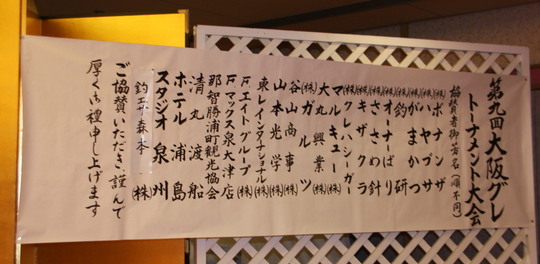 第九回大阪グレ
トーナメント大会
協賛者御芳名(順不同)
(株)ボナンザ
(株)ハヤブサ
(株)がまかつ
(株)釣研
オーナーばり
ささめ針
(株)キザクラ
クレハシーガー
マルキユー(株)
大丸興業(株)
(株)ガルツ
谷山商事(株)
山本光学(株)
東レインターナショナル(株)
Fエイトグループ(株)
Fマックス泉大津店
那智勝浦町観光協会
清丸渡船
ホテル浦島
スタジオ泉州
釣平森本(株)
ご協賛いただき謹んで
厚く御禮申し上げます